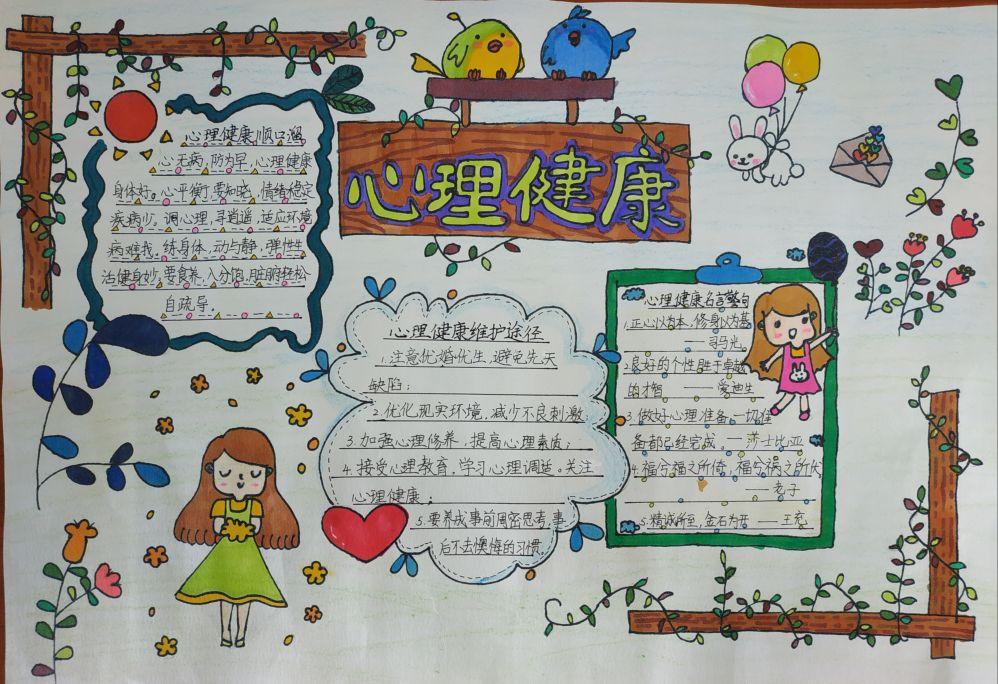 心理健康
心理健康顺口溜
心无病,防为早,心理健康
身体好。心平衡,要知晓,情绪稳定
疾病少,调心理,寻逍遥,适应环境
病难找,练身体,动与静,弹性生
活健身妙,要食养,八分饱,脏腑轻松
自疏导.
心理健康维护途径
1.注意优婚优生,避免先天
缺陷;
2.优化现实环境,减少不良刺激;
3.加强心理修养,提高心理素质;
4.接受心理教育,学习心理调适。关注
心理健康;
5.要养成事前周密思考,事
后不去懊悔的习惯
心理健康名言警句
1.正心以为本,修身以为基
——司马光。
2.良好的个性胜于卓越
的才智 ——爱迪生
3.做好心理准备,一切准
备都已经完成。—莎士比亚
4.福兮祸之所倚,福兮祸之所伏
——老子
5.精诚所至,金石为开 ——王充